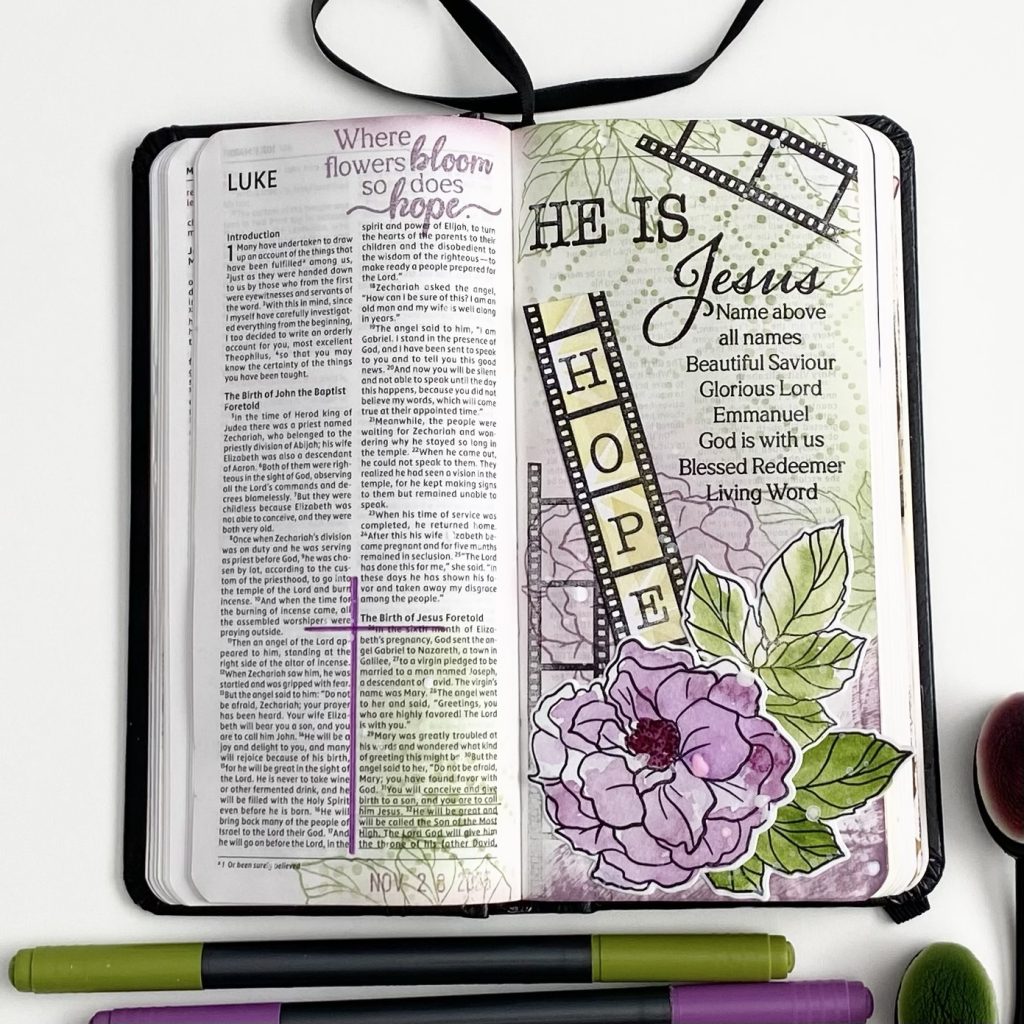 Where
flowers bloom
so does
hope.
LUKE
Introduction
1 Many have undertaken to draw
up an account of the things that
have been fulfilled among us,
²just as they were handed down
to us by those who from the first
were eyewitnesses and servants of
the word. ³With this in mind, since
I myself have carefully investigat-
ed everything from the beginning,
I too decided to write an orderly
account for you, most excellent
Theophilus, ⁴so that you may
know the certainty of the things
you have been taught.
The Birth of John the Baptist
Foretold
⁵In the time of Herod king of
Judea there was a priest named
Zechariah, who belonged to the
priestly division of Abijah; his wife
Elizabeth was also a descendant
of Aaron. ⁶Both of them were righ-
teous in the sight of God, observing
all the Lord's commands and de-
crees blamelessly. ⁷But they were
childless because Elizabeth was
not able to conceive, and they were
both very old.
⁸Once when Zechariah's division
was on duty and he was serving
as priest before God, ⁹he was cho-
sen by lot, according to the cus-
tom of the priesthood, to go into
the temple of the Lord and burn
incense. ¹⁰And when the time for
the burning of incense came, all
the assembled worshipers were
praying outside.
¹¹Then an angel of the Lord ap-
peared to him, standing at the
right side of the altar of incense.
¹²When Zechariah saw him, he was
startled and was gripped with fear.
¹³But the angel said to him: "Do not
be afraid, Zechariah; your prayer
has been heard. Your wife Eliza-
beth will bear you a son, and you
are to call him John. ¹⁴He will be a
joy and delight to you, and many
will rejoice because of his birth,
¹⁵for he will be great in the sight of
the Lord. He is never to take wine
or other fermented drink, and he
will be filled with the Holy Spirit
even before he is born. ¹⁶He will
bring back many of the people of
Israel to the Lord their God. ¹⁷And
he will go on before the Lord, in the
1 Or been surely believed
spirit and power of Elijah, to turn
the hearts of the parents to their
children and the disobedient to
the wisdom of the righteous—to
make ready a people prepared for
the Lord."
¹⁸Zechariah asked the angel,
"How can I be sure of this? I am an
old man and my wife is well along
in years."
¹⁹The angel said to him, "I am
Gabriel. I stand in the presence of
God, and I have been sent to speak
to you and to tell you this good
news. ²⁰And now you will be silent
and not able to speak until the day
this happens, because you did not
believe my words, which will come
true at their appointed time."
²¹Meanwhile, the people were
waiting for Zechariah and won-
dering why he stayed so long in
the temple. ²²When he came out,
he could not speak to them. They
realized he had seen a vision in the
temple, for he kept making signs
to them but remained unable to
speak.
²³When his time of service was
completed, he returned home.
²⁴After this his wife Elizabeth be-
came pregnant and for five months
remained in seclusion. ²⁵"The Lord
has done this for me," she said. "In
these days he has shown his fa-
vor and taken away my disgrace
among the people."
The Birth of Jesus Foretold
²⁶In the sixth month of Eliza-
beth's pregnancy, God sent the an-
gel Gabriel to Nazareth, a town in
Galilee, ²⁷to a virgin pledged to be
married to a man named Joseph,
a descendant of David. The virgin's
name was Mary. ²⁸The angel went
to her and said, "Greetings, you
who are highly favored! The Lord
is with you."
²⁹Mary was greatly troubled at
his words and wondered what kind
of greeting this might be. ³⁰But the
angel said to her, "Do not be afraid,
Mary; you have found favor with
God. ³¹You will conceive and give
birth to a son, and you are to call
him Jesus. ³²He will be great and
will be called the Son of the Most
High. The Lord God will give him
the throne of his father David,
NOV 28 2025
HE IS
Jesus
Name above
all names
Beautiful Saviour
Glorious Lord
Emmanuel
God is with us
Blessed Redeemer
Living Word
HOPE